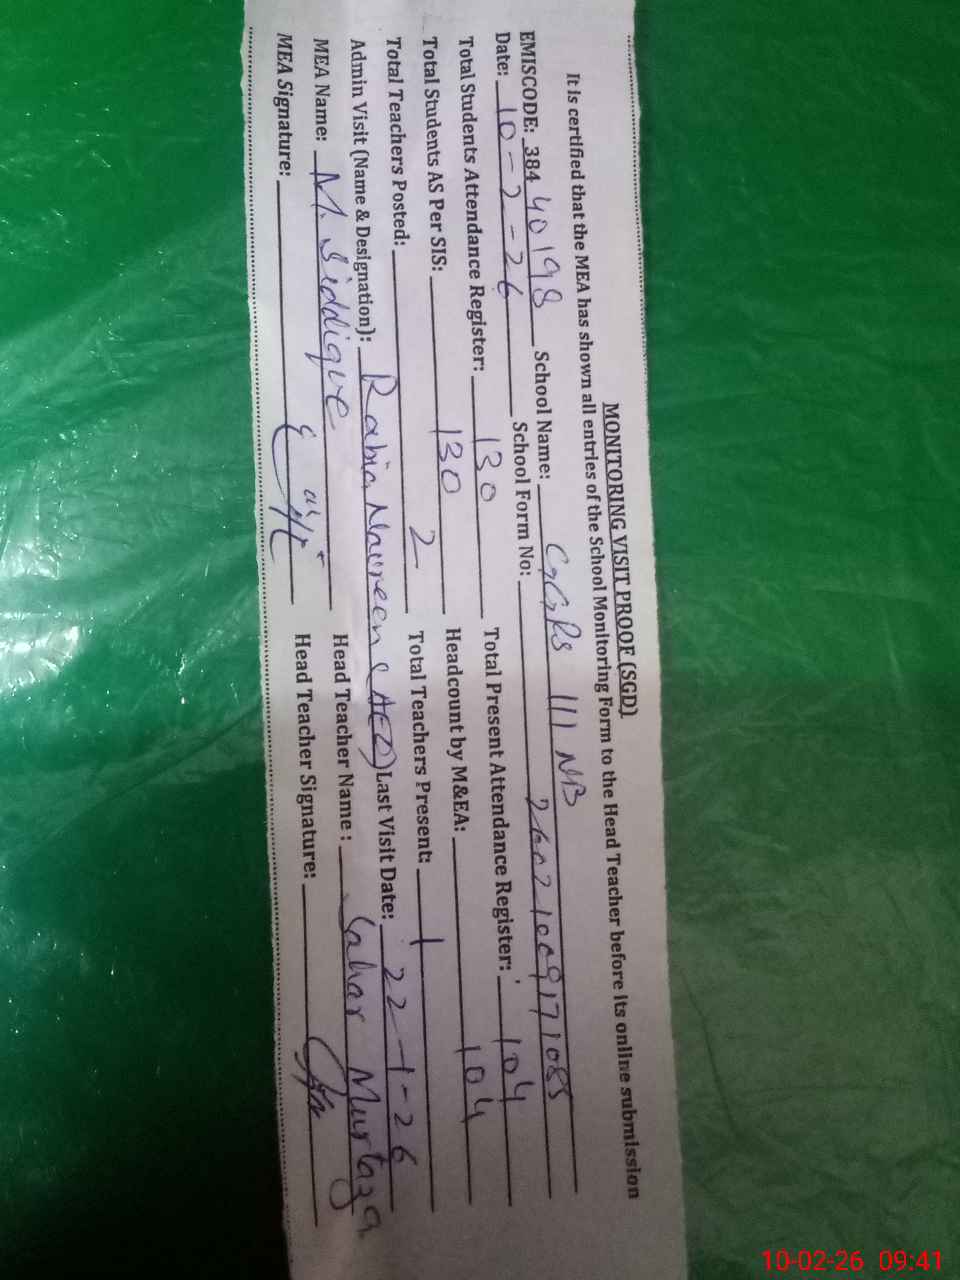 MONITORING VISIT PROOF (SGD)
It is certified that the MEA has shown all entries of the School Monitoring Form to the Head Teacher before its online submission
EMISCODE: 384 40198 School Name: GGPS 111 NB
Date: 10-2-26 School Form No: 26021009171085
Total Students Attendance Register: 130 Total Present Attendance Register: 104
Total Students AS Per SIS: 130 Headcount by M&EA: 104
Total Teachers Posted: 2 Total Teachers Present: 1
Admin Visit (Name & Designation): Rabia Naureen (AEO) Last Visit Date: 22-1-26
MEA Name: M. Siddique Head Teacher Name : Sahar Murtaza
MEA Signature: Head Teacher Signature:
10-02-26 09:41